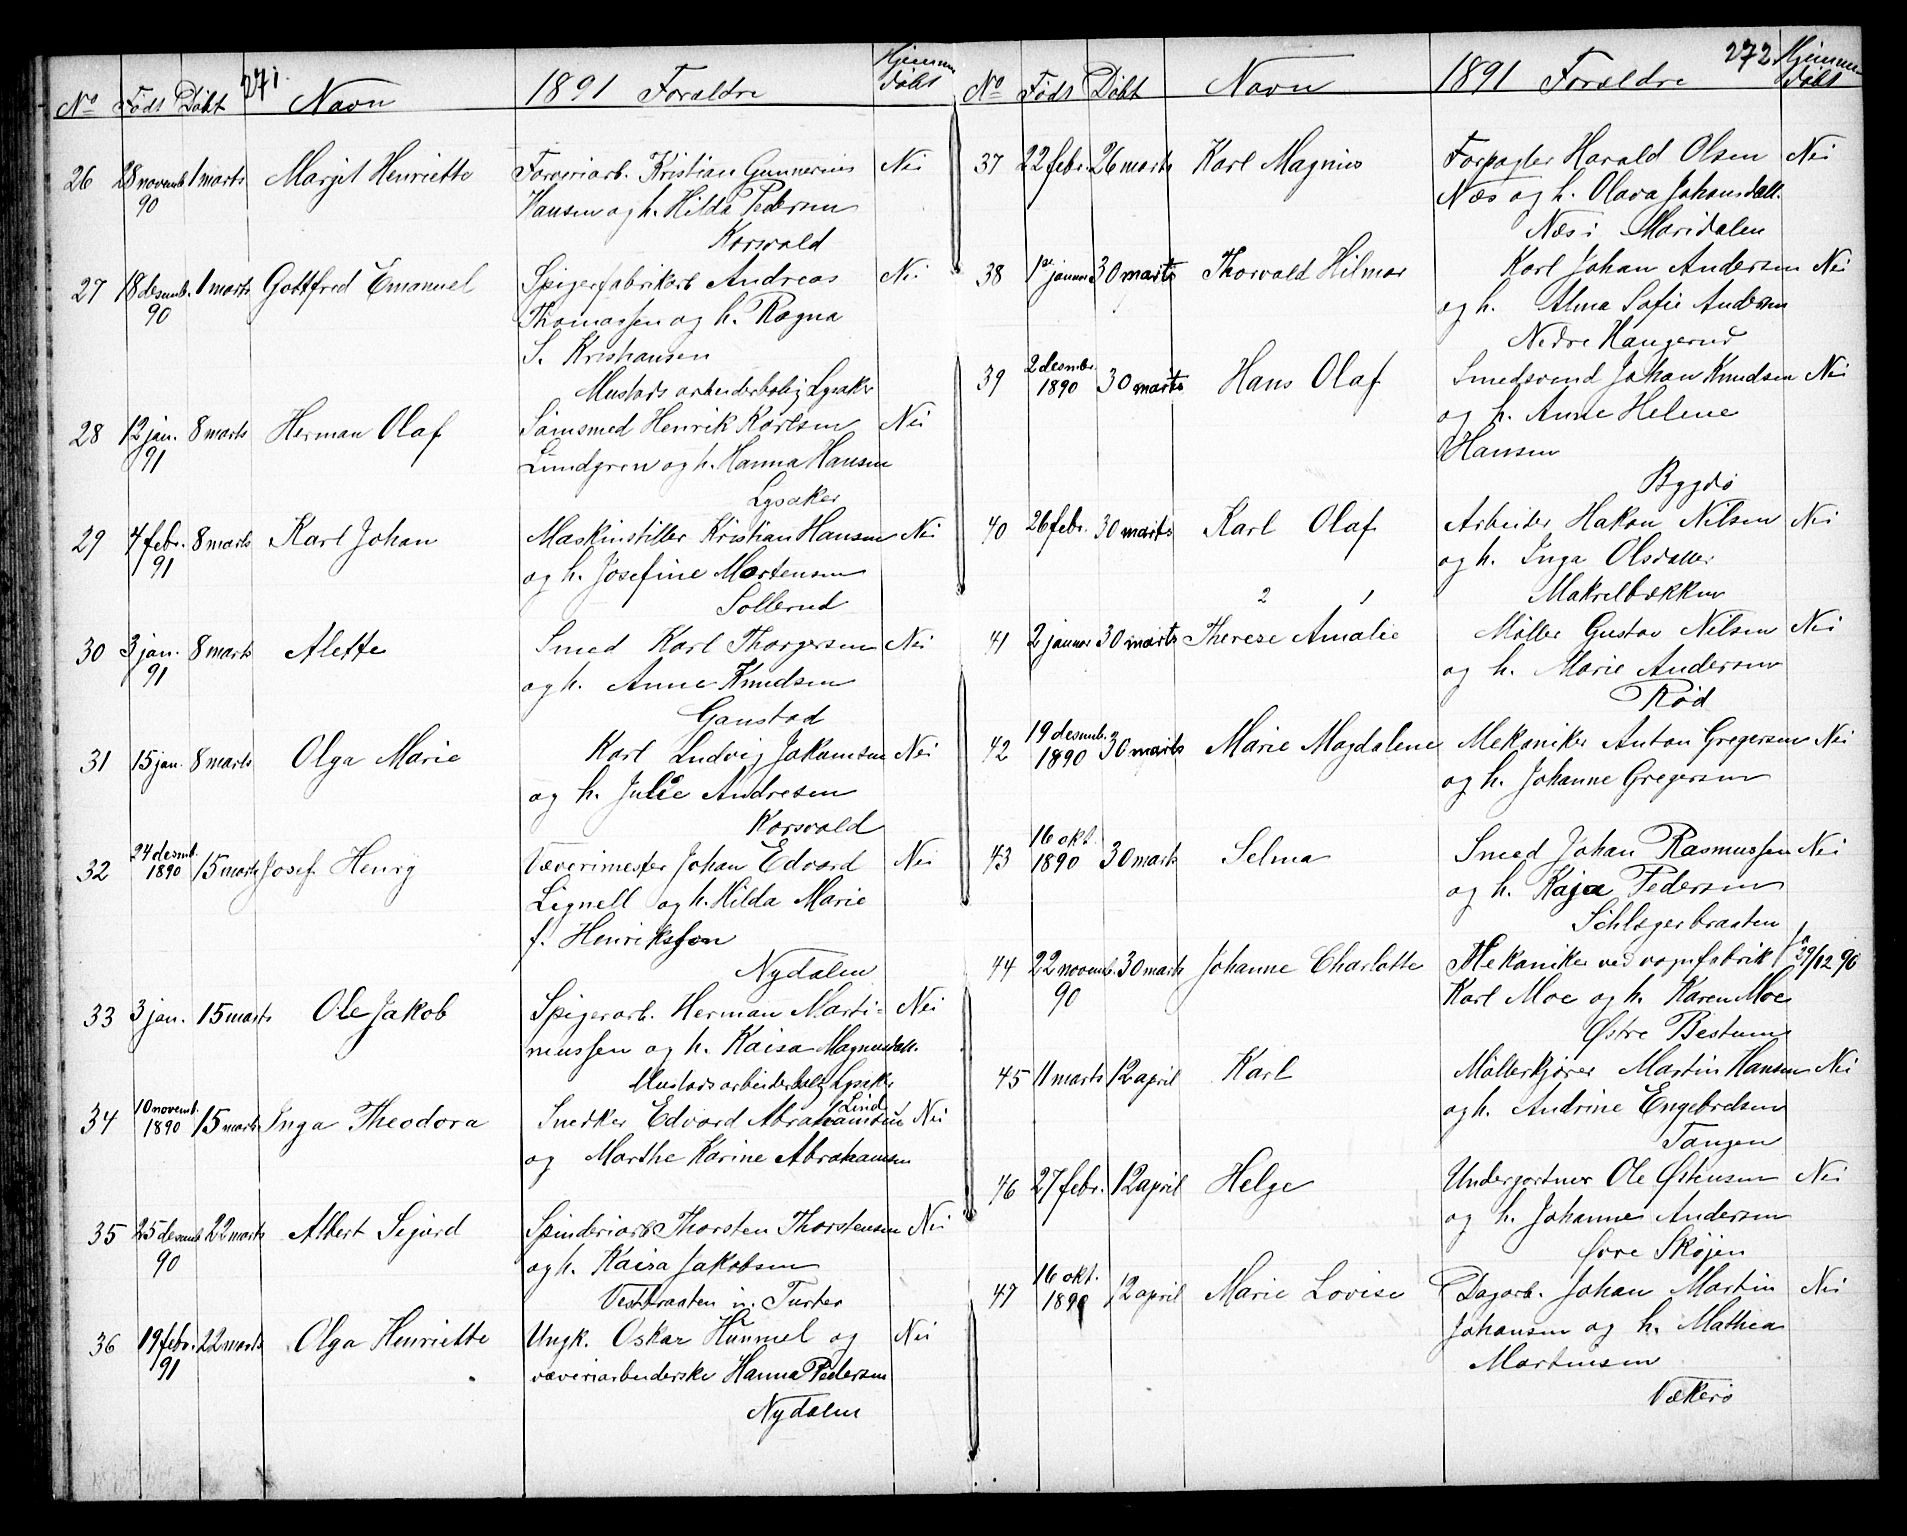 271.
No Føds Døbt Navn 1891 Forældre Hjemmedøbt
26 28 novemb. 90 1 marts Margit Henriette Farveriarb. Kristian Gunnerius Nei
Hansen og h. Hilda Pedersen
Korsvold
27 18 desemb. 90 1 marts Gottfred Emanuel Spigerfabrikarb Andreas Nei
Thomassen og h. Ragna
S. Kristiansen
Mustads arbeiderbolig Lysaker
28 12 jan. 91 8 marts Herman Olaf Sømsmed Henrik Karlsen Nei
Lundgren og h. Hanna Hansen
Lysaker
29 4 febr. 91 8 marts Karl Johan Maskinstiller Kristian Hansen Nei
og h. Josefine Mortensen
Sollerud
30 3 jan. 91 8 marts Alette Smed Karl Thorgersen Nei
og h. Anne Knudsen
Ganstad
31 15 jan. 8 marts Olga Marie Karl Ludvig Johansen Nei
og h. Julie Andresen
Korsvold
32 24 desmb. 1890 15 marts Josef Henry Væverimester Johan Edvard Nei
Lignell og h. Hilda Marie
f. Henriksson
Nydalen
33 3 jan. 15 marts Ole Jakob Spigerarb. Herman Marti= Nei
niussen og h. Kaisa Magnusdatt.
Mustads arbeiderbolig Lysaker
34 10 novemb. 1890 15 marts Inga Theodora Snedker Edvard Abrahamsen Lind Nei
og Marthe Karine Abrahamsen
35 25 desemb 90 22 marts Albert Sigurd Spinderiarb Thorsten Thorstensen Nei
og h. Kaisa Jakobsen
Vestbraaten n. Turter
36 19 febr. 91 22 marts Olga Henriette Ungk. Oskar Hummel og Nei
væveriarbeiderske Hanna Pedersen
Nydalen
272
No Føds Døbt Navn 1891 Forældre Hjemmedøbt
37 22 febr. 26 marts Karl Magnus Forpagter Harald Olsen Nei
Næs og h. Olava Johansdatt.
Næs i Maridalen
38 1ste januar 30 marts Thorvald Hilmar Karl Johan Andersen Nei
og h. Alma Sofie Andersen
Nedre Haugerud
39 2 desmbr. 1890 30 marts Hans Olaf Smedsvend Johan Knudsen Nei
og h. Anne Helene
Hansen
Bygdø
40 26 febr. 30 marts Karl Olaf Arbeider Hakon Nilsen Nei
og h. Inga Olsdatter
Makrelbækken
2 1
41 2 januar 30 marts Therese Amalie Møller Gustav Nilsen Nei
og h. Marie Andersen
Rød
42 19 desemb. 1890 30 marts Marie Magdalene Mekaniker Anton Gregersen Nei
og h. Johanne Gregersen
43 16 okt. 1890 30 marts Selma Smed Johan Rasmussen Nei
og h. Kaja Pedersen
Schlagerbraaten
44 22 novemb. 90 30 marts Johanne Charlotte Mekaniker ved vognfabrik Ja 29/12 90
Karl Moe og h. Karen Moe
Østre Bestum
45 11 marts 12 april Karl Møllerkjører Martin Hansen Nei
og h. Andrine Engebretsen
Tangen
46 27 febr. 12 april Helge Undergartner Ole Østensen Nei
og h. Johanne Andersen
Øvre Skøjen
47 16 okt. 1890 12 april Marie Lovise Dagarb. Johan Martin Nei
Johansen og h. Mathea
Martinsen
Vækerø